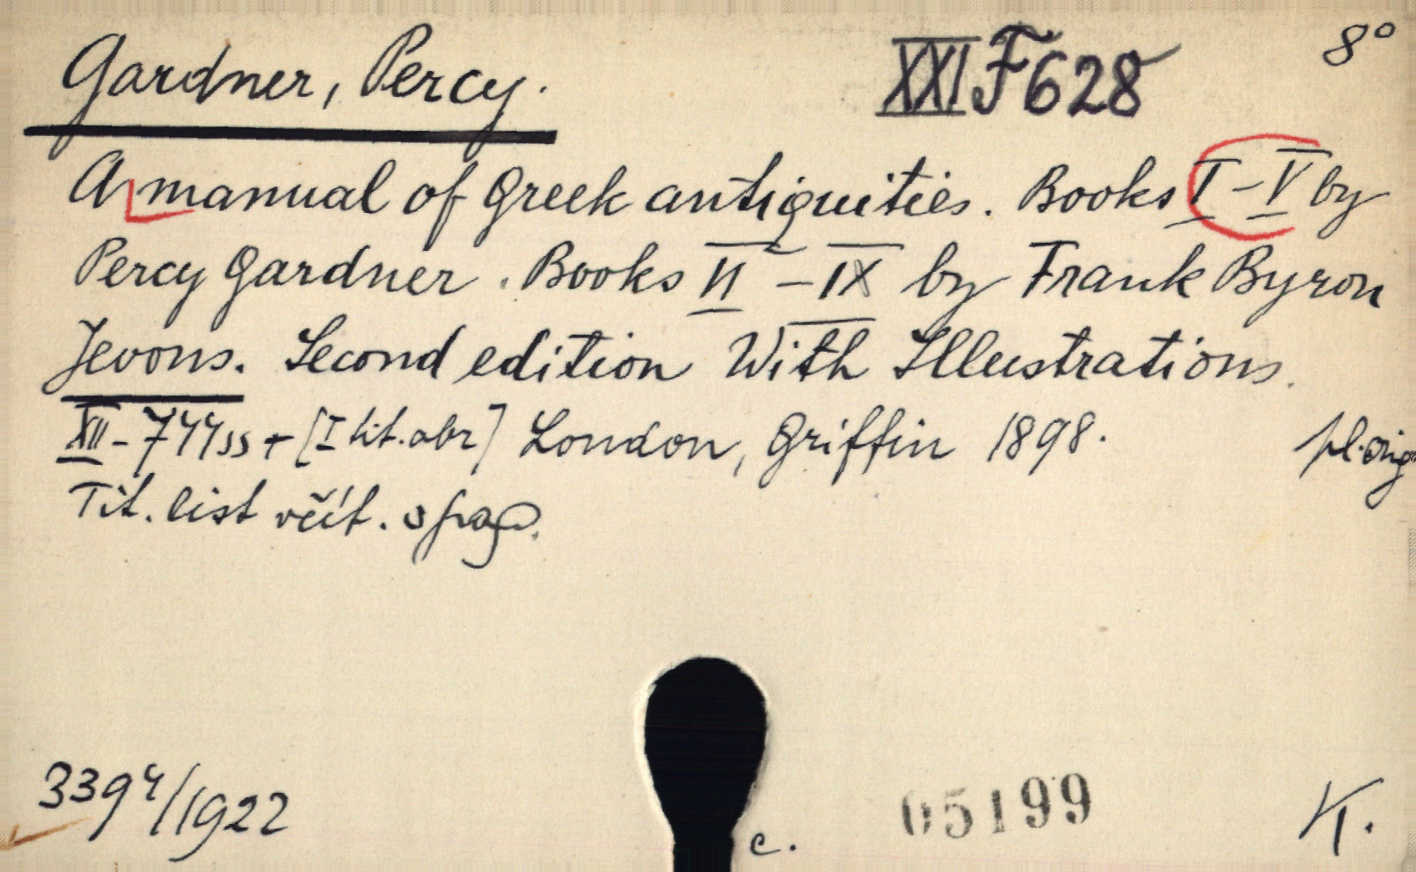 Gardner, Percy. XXI F 628 8°
A manual of Greek antiquities. Books I-V by
Percy Gardner. Books VI-IX by Frank Byron
Jevons. Second edition With Illustrations.
XII-744 ss + [I tit. obr] London, Griffin 1898. pl. orig
Tit. list včít. v pag.
3394/1922 c. 05199 K.